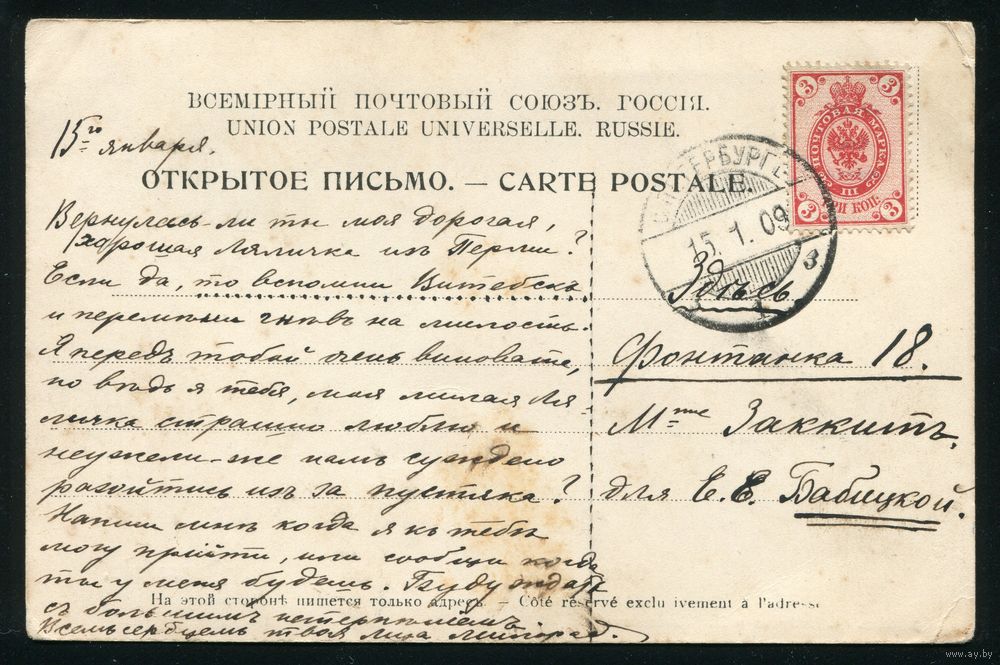 ВСЕМІРНЫЙ ПОЧТОВЫЙ СОЮЗЪ. РОССІЯ.
UNION POSTALE UNIVERSELLE. RUSSIE.
ОТКРЫТОЕ ПИСЬМО. — CARTE POSTALE.
3 3
ПОЧТОВАЯ МАРКА
III
ТРИ КОП.
3 3
15го января.
Вернулась-ли ты моя дорогая,
хорошая Ляличка изъ Перми?
Если да, то вспомни Витебскъ
и перемѣни гнѣвъ на милость.
Я передъ тобой очень виновата,
но вѣдь я тебя, моя милая Ля-
личка страшно люблю и
неужели-же намъ суждено
разойтись изъ за пустяка?
Напиши мнѣ когда я къ тебѣ
могу прійти, или сообщи когда
ты у меня будешь. Буду ждать
съ большимъ нетерпѣніемъ
Всемъ сердцемъ твоя Лиза
ПЕТЕРБУРГЪ
15.1.09
3
1
Здѣсь
Фонтанка 18.
Мme Заккитъ.
для Е. Е. Бабицкой.
На этой сторонѣ пишется только адресъ. — Côté réservé exclusivement à l'adresse
www.ay.by